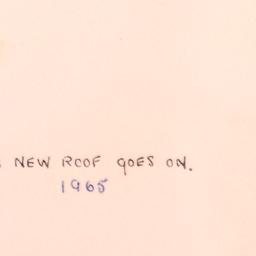 NEW ROOF GOES ON.
1965